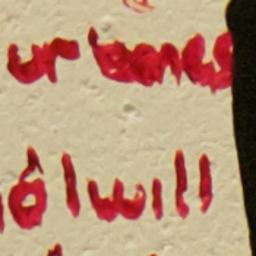 ur bones
I will